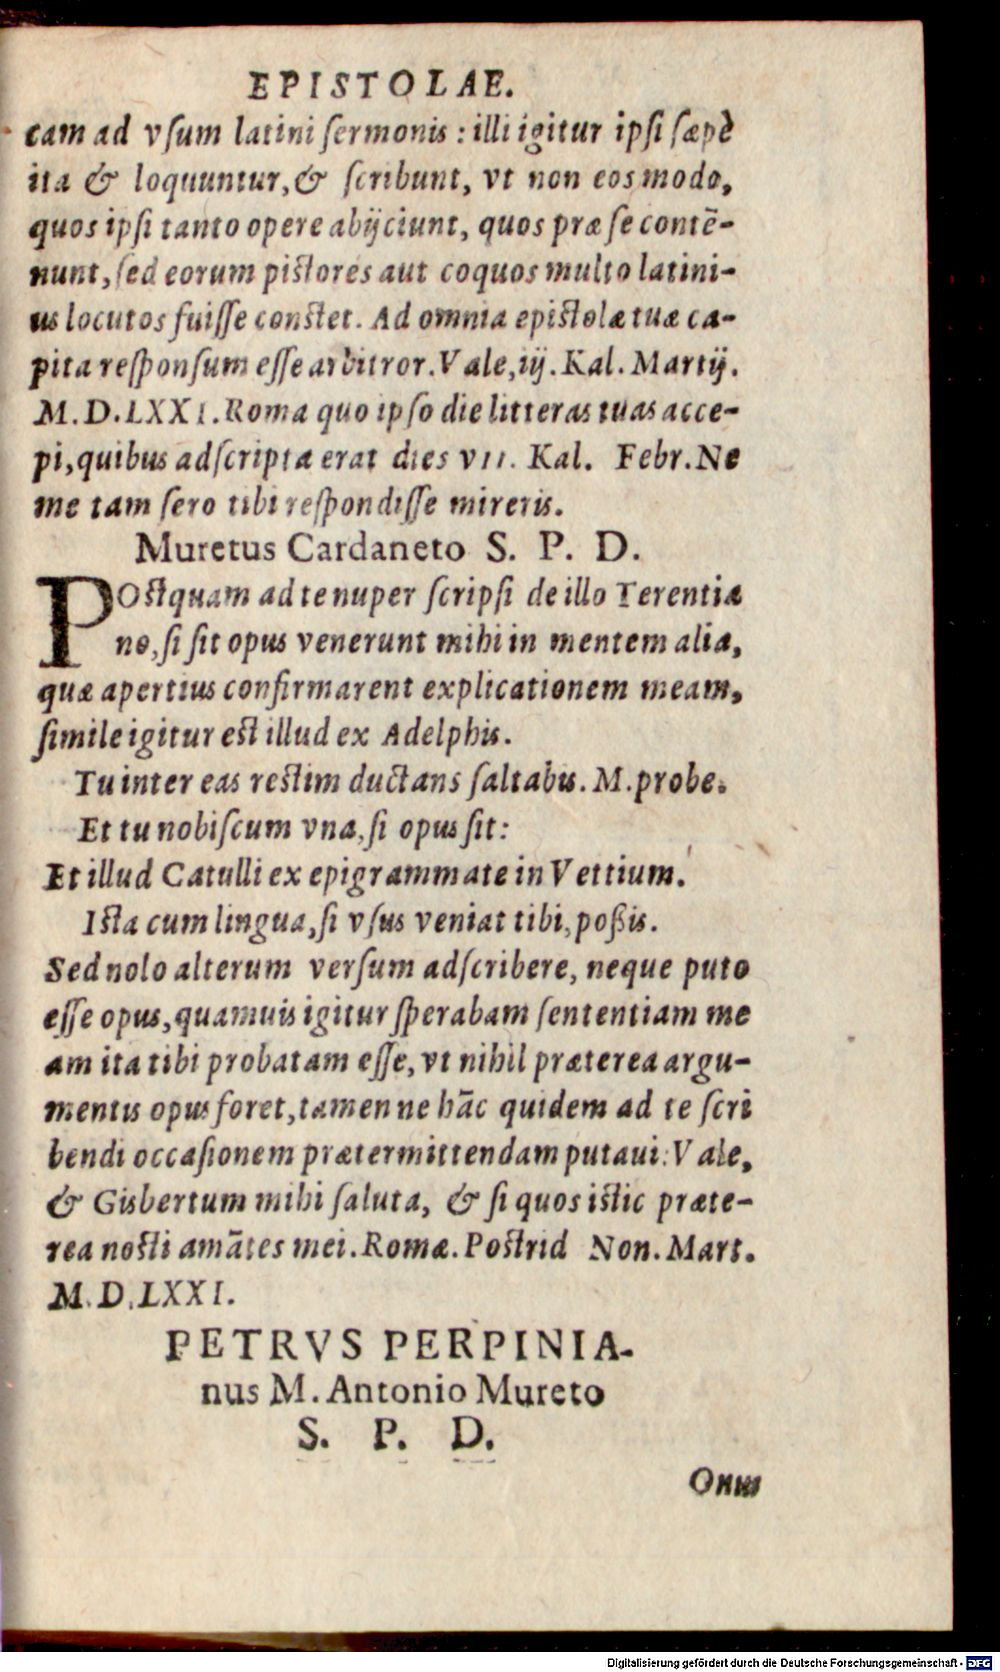 EPISTOLAE.
cam ad vſum latini ſermonis : illi igitur ipſi ſæpè
ita & loquuntur, & ſcribunt, vt non eos modo,
quos ipſi tanto opere abijciunt, quos præ ſe contē-
nunt, ſed eorum piſtores aut coquos multo latini-
us locutos fuiſſe conſtet. Ad omnia epiſtolæ tuæ ca-
pita reſponſum eſſe arbitror. Vale, iij. Kal. Martij.
M. D. LXXI. Roma quo ipſo die litteras tuas acce-
pi, quibus adſcripta erat dies VII. Kal. Febr. Ne
me tam ſero tibi reſpondiſſe mireris.
Muretus Cardaneto S. P. D.
POſtquam ad te nuper ſcripſi de illo Terentiæ
no, ſi ſit opus venerunt mihi in mentem alia,
quæ apertius confirmarent explicationem meam,
ſimile igitur eſt illud ex Adelphis.
Tu inter eas reſtim ductans ſaltabis. M. probe.
Et tu nobiſcum vna, ſi opus ſit:
Et illud Catulli ex epigrammate in Vettium.
Iſta cum lingua, ſi vſus veniat tibi, poßis.
Sed nolo alterum verſum adſcribere, neque puto
eſſe opus, quamuis igitur ſperabam ſententiam me
am ita tibi probatam eſſe, vt nihil præterea argu-
mentis opus foret, tamen ne hāc quidem ad te ſcri
bendi occaſionem prætermittendam putaui: Vale,
& Gisbertum mihi ſaluta, & ſi quos iſtic præte-
rea noſti amātes mei. Romæ. Poſtrid Non. Mart.
M. D. LXXI.
PETRVS PERPINIA-
nus M. Antonio Mureto
S. P. D.
Onus
Digitalisierung gefördert durch die Deutsche Forschungsgemeinschaft - DFG